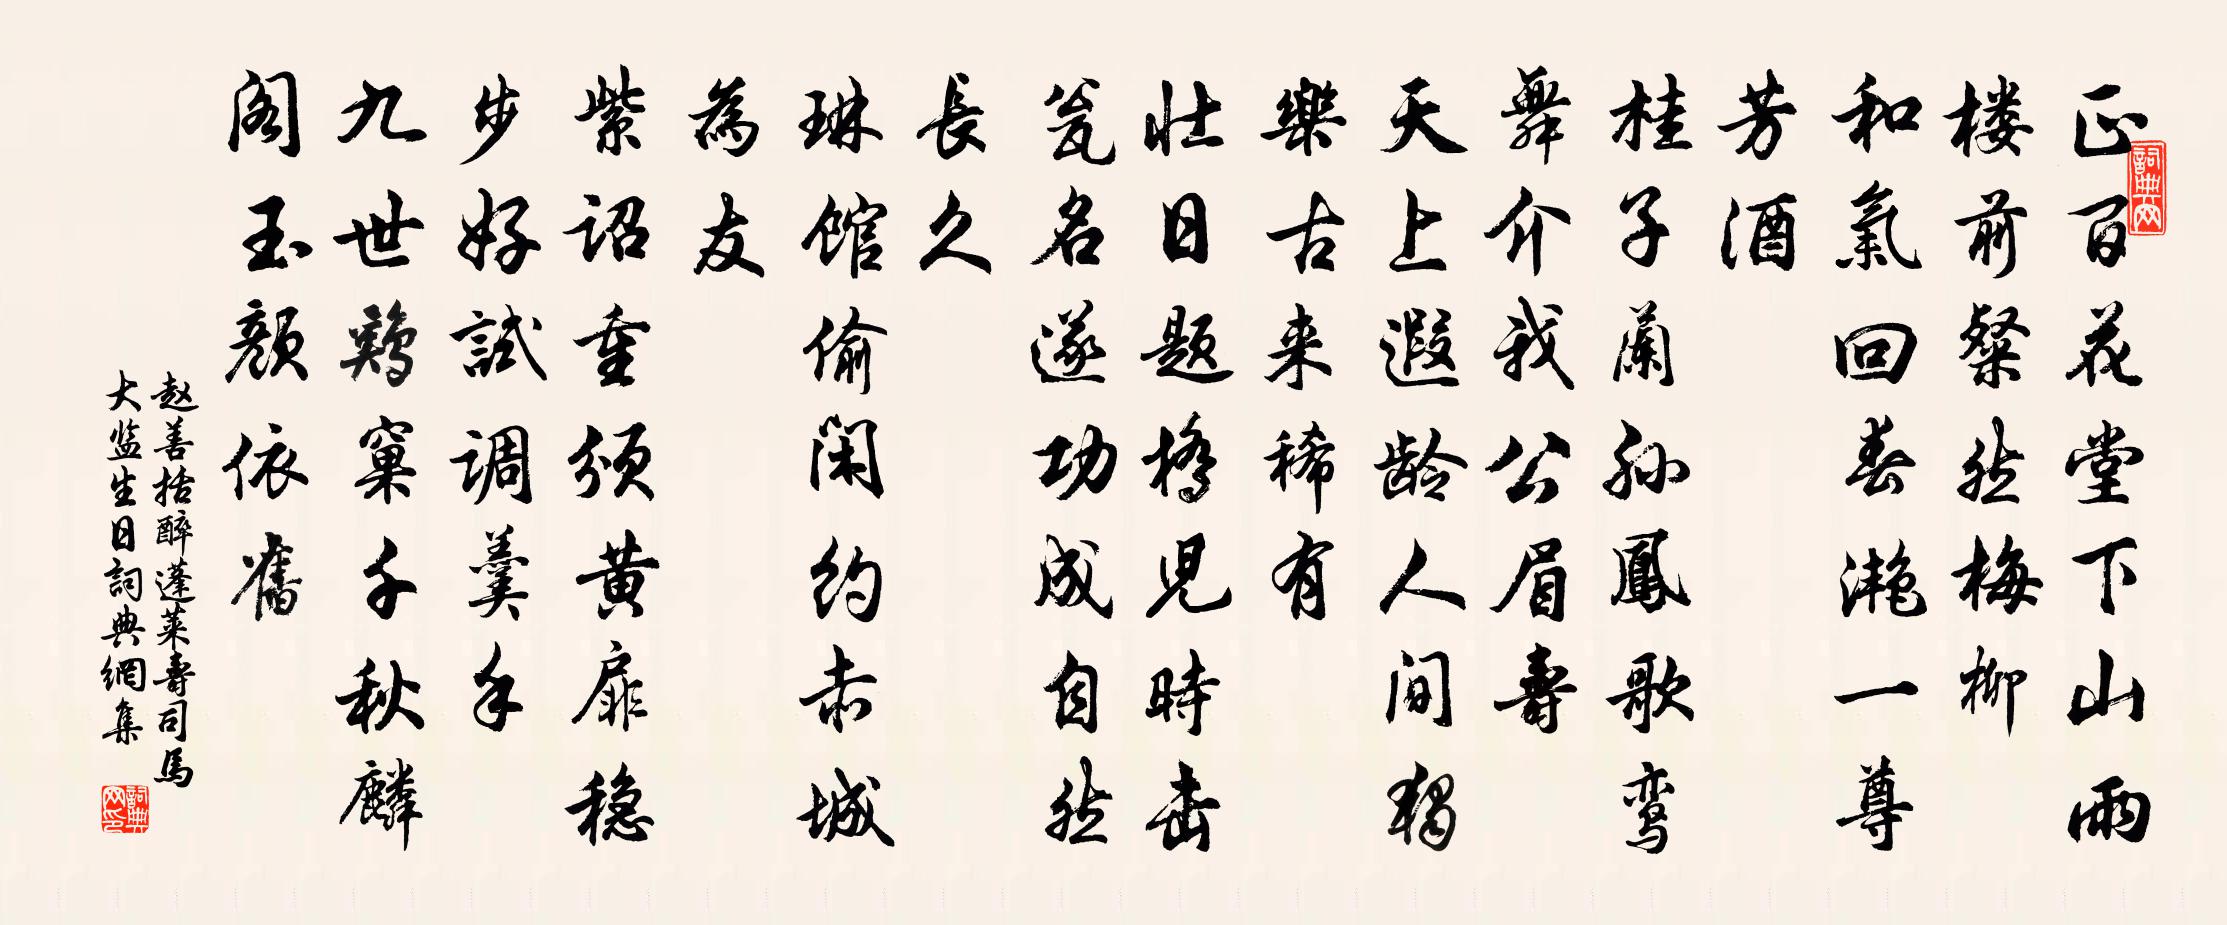 正百花堂下山雨
楼前粲然梅柳
和氣回春灔一尊
芳酒
桂子蘭孙鳳歌鸾
舞介我公眉壽
天上遐龄人间独
樂古来稀有
壮日题桥児時击
瓮名遂功成自然
長久
琳馆偷闲约赤城
為友
紫诏重颁黄扉稳
步好試调羹手
九世鷄窠千秋麟
阁玉颜依舊
赵善括醉蓬莱壽司馬
大监生日詞典網集
詞典网
詞典网印